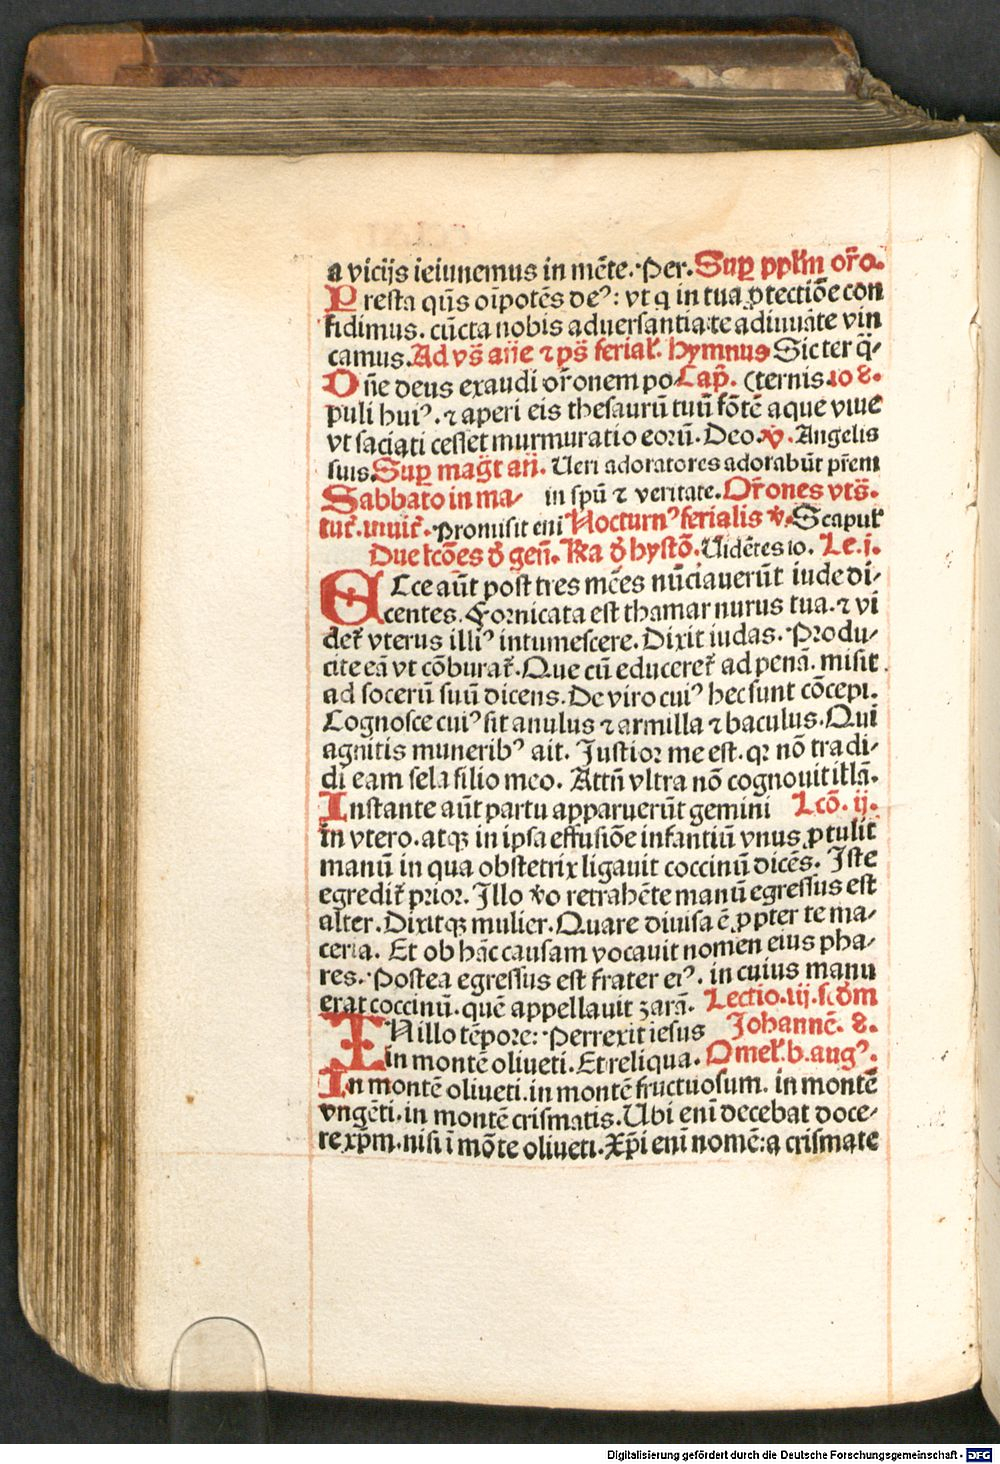 a vicijs ieiunemus in mēte. Per. Sup ppl'm or̄o.
Presta qūs oīpotēs deꝰ: vt q in tua ꝓtectiōe con
fidimus. cūcta nobis aduersantia: te adiuuāte vin
camus. Ad vs̄ an̄e ⁊ ps̄ ferial'. hymnus Sic ter q̄-
Dn̄e deus exaudi or̄onem po- Cap̄. (ternis. 10 8.
puli huiꝰ. ⁊ aperi eis thesaurū tuū fōtē aque viue
vt saciati cesset murmuratio eorū. Deo. v̄. Angelis
suis. Sup maḡt an̄. Ueri adoratores adorabūt p̄rem
Sabbato in ma- in spū ⁊ veritate. Or̄ones vts̄.
tut'. inuit'. Promisit eni Nocturnꝰ ferialis v̄. Scapul'
Due lc̄ōes d̄ gen̄. Ra d̄ hystō. Uidētes io. Le. i.
ECce aūt post tres mēses nūciauerūt iude di-
centes. Fornicata est thamar nurus tua. ⁊ vi
det' vterus illiꝰ intumescere. Dixit iudas. Produ-
cite eā vt cōburat'. Que cū educeret' ad penā. misit
ad socerū suū dicens. De viro cuiꝰ hec sunt cōcepi.
Cognosce cuiꝰ sit anulus ⁊ armilla ⁊ baculus. Qui
agnitis muneribꝰ ait. Justior me est. qꝛ nō tradi-
di eam sela filio meo. Attn̄ vltra nō cognouit illā.
Instante aūt partu apparuerūt gemini Lcō. ij.
in vtero. atqꝫ in ipsa effusiōe infantiū vnus ꝓtulit
manū in qua obstetrix ligauit coccinū dicēs. Iste
egredit' prior. Illo v̄o retrahēte manū egressus est
alter. Dixitqꝫ mulier. Quare diuisa ē ꝓpter te ma-
ceria. Et ob hāc causam vocauit nomen eius pha-
res. Postea egressus est frater eiꝰ. in cuius manu
erat coccinū. quē appellauit zarā. Lectio. iij. scd̄m
IN illo tēpore: Perrexit iesus Johannē. 8.
in montē oliueti. Et reliqua. Omel'. b. augꝰ.
In montē oliueti. in montē fructuosum. in montē
vngēti. in montē crismatis. Ubi enī decebat doce-
re xp̄m. nisi ī mōte oliueti. Xp̄i enī nomē: a crismate
Digitalisierung gefördert durch die Deutsche Forschungsgemeinschaft - DFG